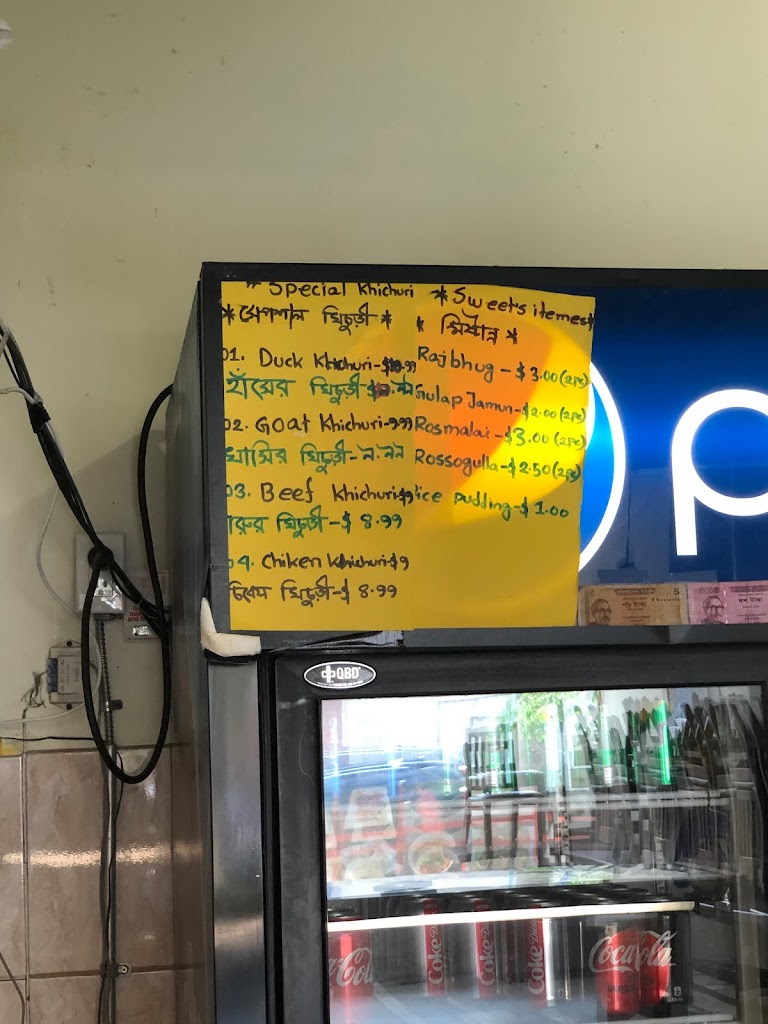 * Special Khichuri
* স্পেশাল খিচুড়ী *
01. Duck Khichuri-$10.99
হাঁসের খিচুড়ী
02. Goat Khichuri-9.99
খাসির খিচুড়ী-৯.৯৯
03. Beef Khichuri-$9
গরুর খিচুড়ী-$ 8.99
04. Chiken Khichuri-$9
চিকেন খিচুড়ী-$ 8.99
* Sweets itemes*
* মিষ্টান্ন *
Rajbhug - $3.00 (2Pc)
Gulap Jamun-$2.00 (2Pc)
Rosmalai-$3.00 (2Pc)
Rossogulla-$2.50 (2Pc)
Rice pudding-$1.00
p
পাঁচ টাকা
5
দশ টাকা
QBD
Coca-Cola
Coke
Coke
Coke
Coca-Cola